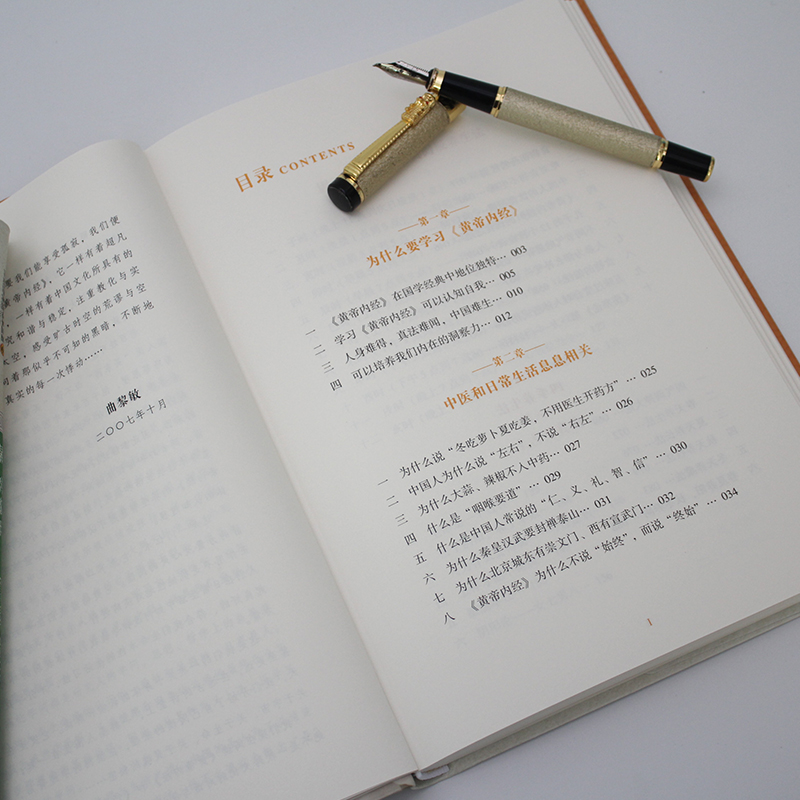 要我们能享受孤寂，我们便
黄帝内经》，它一样有着超凡
，一样有着中国文化所具有的
究和谐与稳定，注重教化与实
天空，感受旷古时空的荒谬与空
着那似乎不可知的黑暗，不断地
真实的每一次悸动……
曲黎敏
二〇〇七年十月
目录 CONTENTS
第一章
为什么要学习《黄帝内经》
一 《黄帝内经》在国学经典中地位独特… 003
二 学习《黄帝内经》可以认知自我… 005
三 人身难得，真法难闻，中国难生… 010
四 可以培养我们内在的洞察力… 012
第二章
中医和日常生活息息相关
一 为什么说“冬吃萝卜夏吃姜，不用医生开药方”… 025
二 中国人为什么说“左右”，不说“右左”… 026
三 为什么大蒜、辣椒不入中药… 027
四 什么是“咽喉要道”… 029
五 什么是中国人常说的“仁、义、礼、智、信”… 030
六 为什么秦皇汉武要封禅泰山… 031
七 为什么北京城东有崇文门、西有宣武门… 032
八 《黄帝内经》为什么不说“始终”，而说“终始”… 034
1